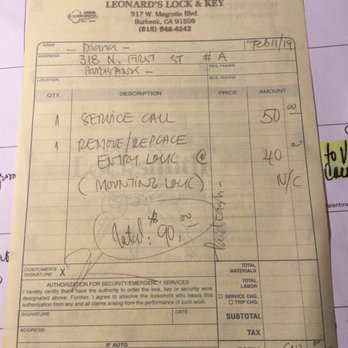 LEONARD'S LOCK & KEY
917 W. Magnolia Blvd.
Burbank, CA 91506
(818) 842-4242
NAME - Diana - DATE Feb 11/19
ADDRESS 318 N. FIRST ST # A RES. PHONE
BURBANK - BUS. PHONE
LOCATION
QTY. DESCRIPTION PRICE AMOUNT
1 SERVICE CALL 50 00
1 REMOVE/REPLACE
ENTRY LOCK @ 40 00
(MOUNTING LOCK) N/C
Total: $ 90.00
Paid cash
CUSTOMER'S SIGNATURE X
TOTAL MATERIALS
AUTHORIZATION FOR SECURITY/EMERGENCY SERVICES
TOTAL LABOR
I hereby certify that I have the authority to order the lock, key or security work
designated above. Further, I agree to absolve the locksmith who bears this
authorization from any and all claims arising from the performance of such work.
SERVICE CHG.
TRIP CHG.
SIGNATURE DATE SUBTOTAL
ADDRESS TAX
IF AUTO